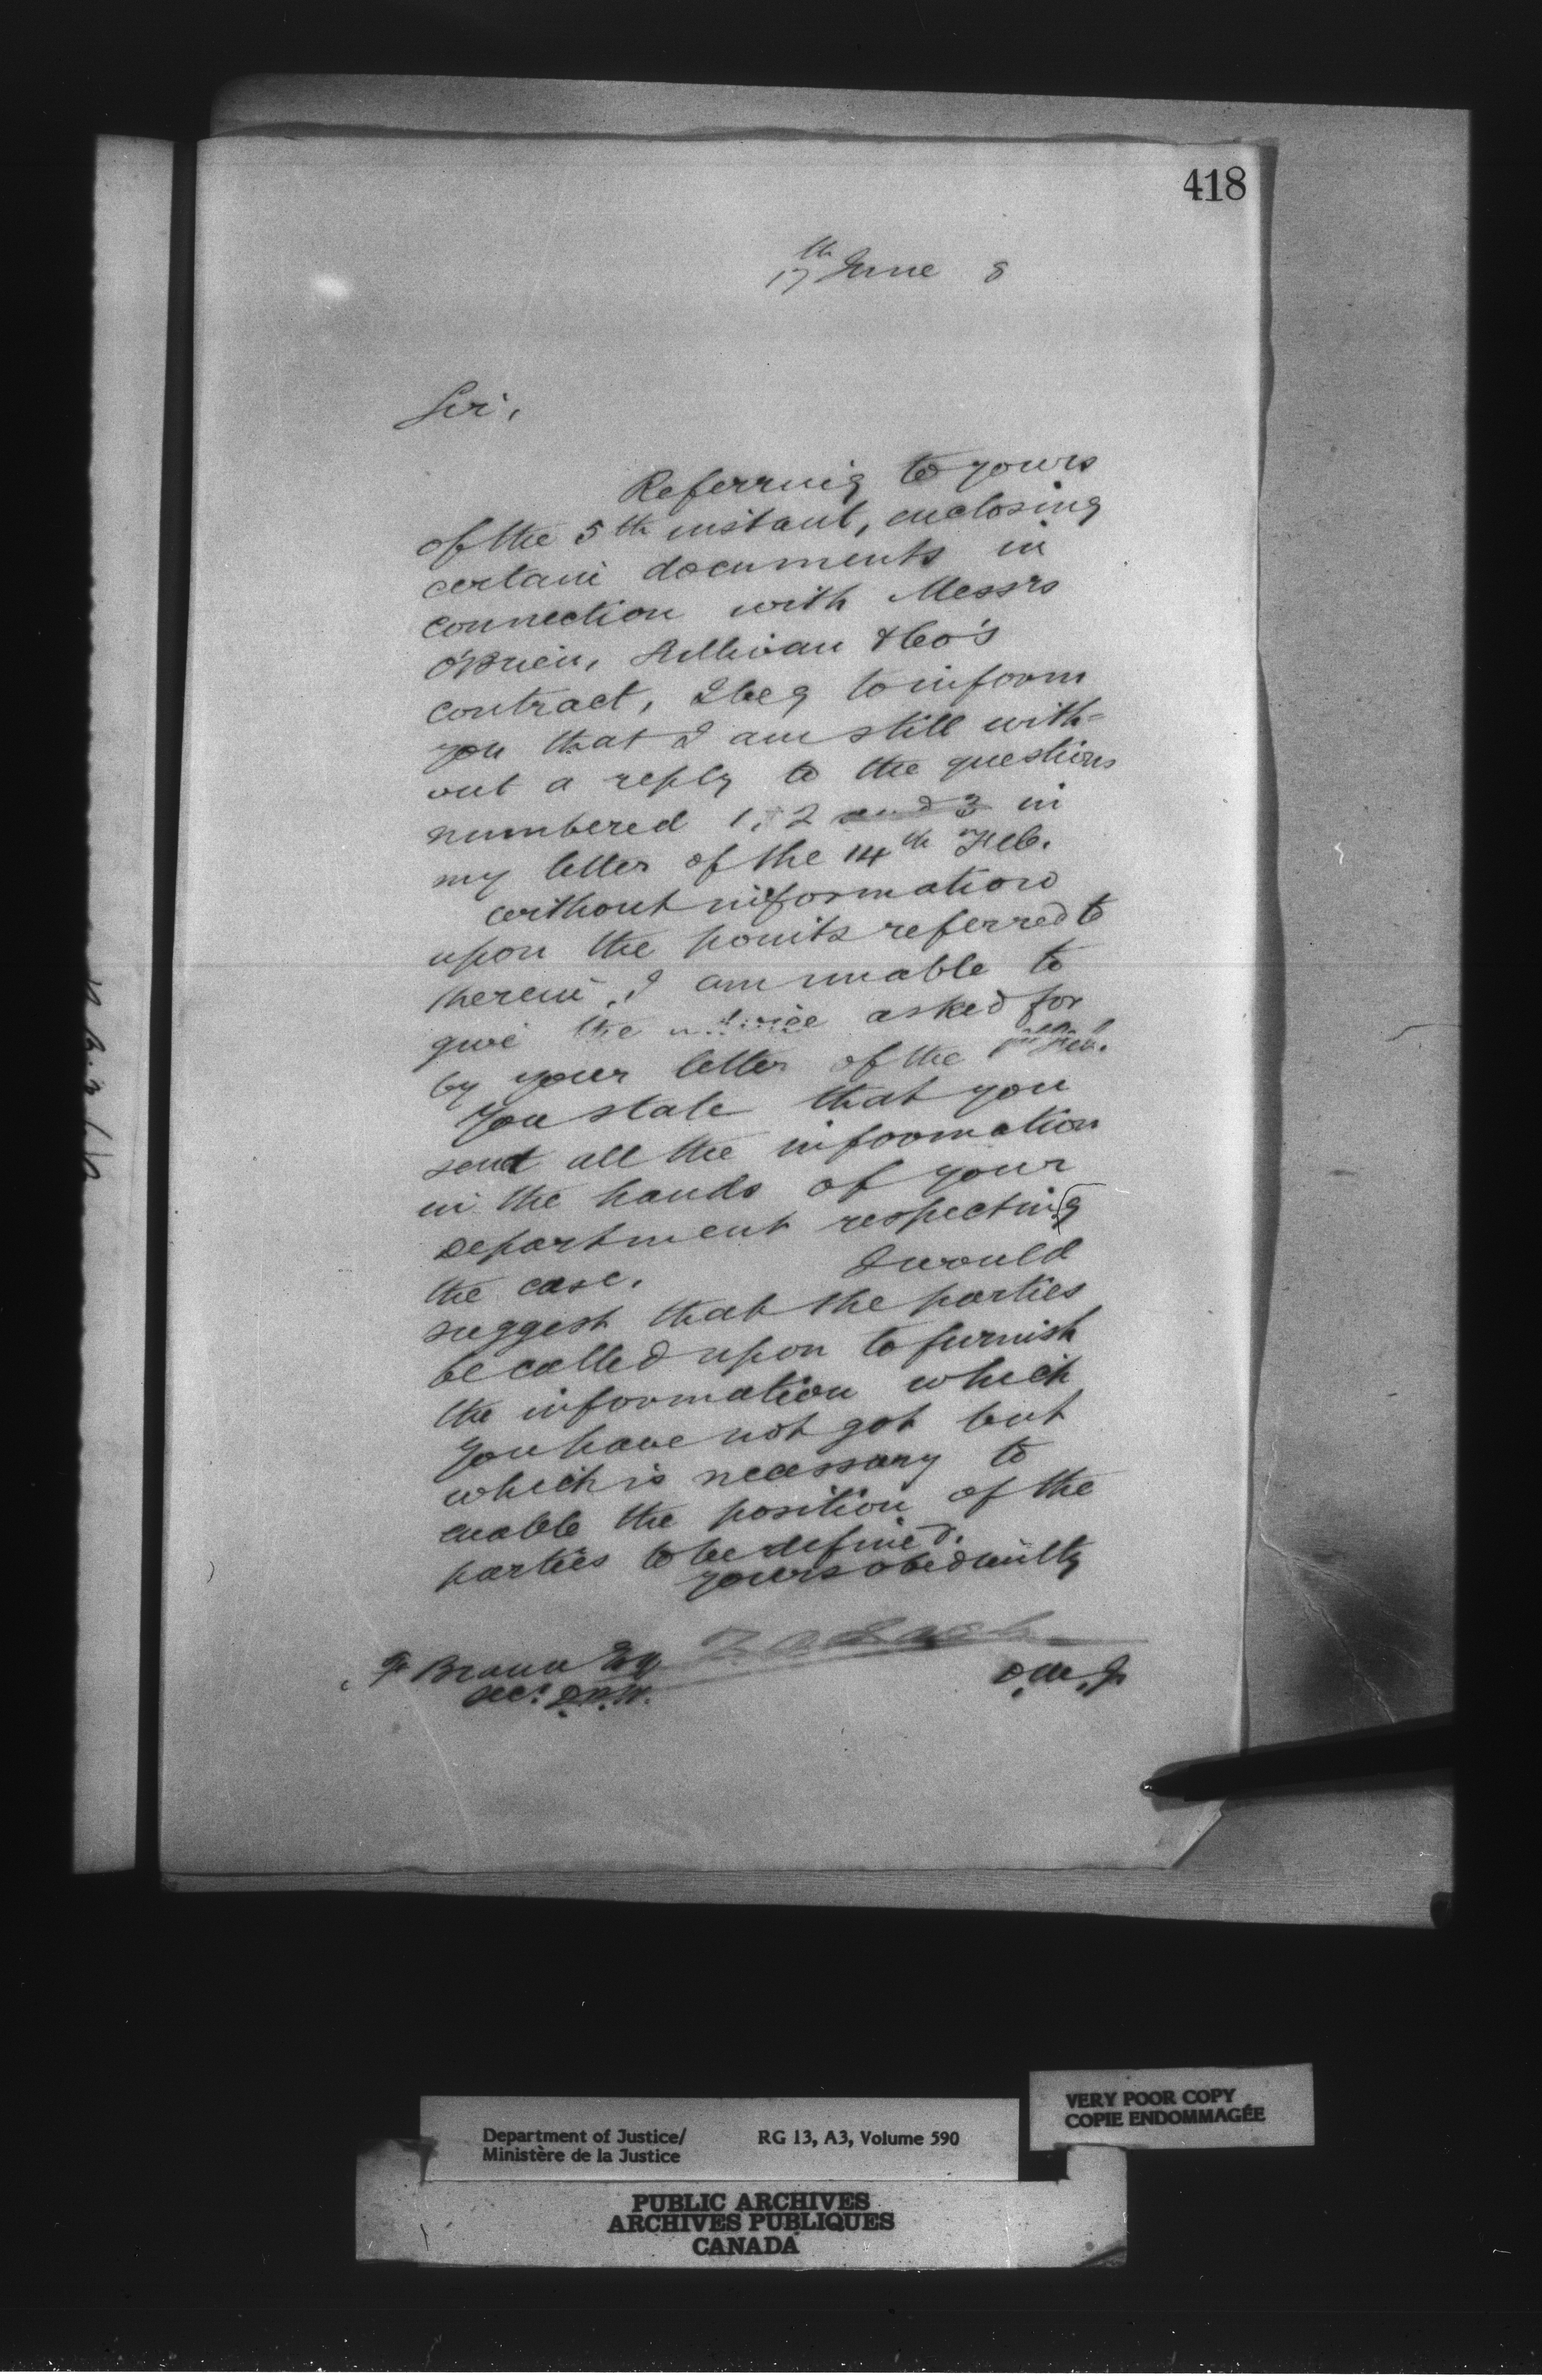 418
17th June 8
Sir,
Referring to yours
of the 5th instant, enclosing
certain documents in
connection with Messrs
O'Brien, Sullivan & Co's
contract, I beg to inform
you that I am still with-
out a reply to the questions
numbered 1, 2 and 3 in
my letter of the 14th Feb.
without information
upon the points referred to
therein, I am unable to
give the advice asked for
by your letter of the Feb.
You state that you
send all the information
in the hands of your
Department respecting
the case. I would
suggest that the parties
be called upon to furnish
the information which
you have not got but
which is necessary to
enable the position of the
parties to be defined.
yours obediently
Z. A. Lash
F Braun Esq
D.M.J.
Sec. D.P.W.
Department of Justice/
Ministère de la Justice
RG 13, A3, Volume 590
VERY POOR COPY
COPIE ENDOMMAGÉE
PUBLIC ARCHIVES
ARCHIVES PUBLIQUES
CANADA